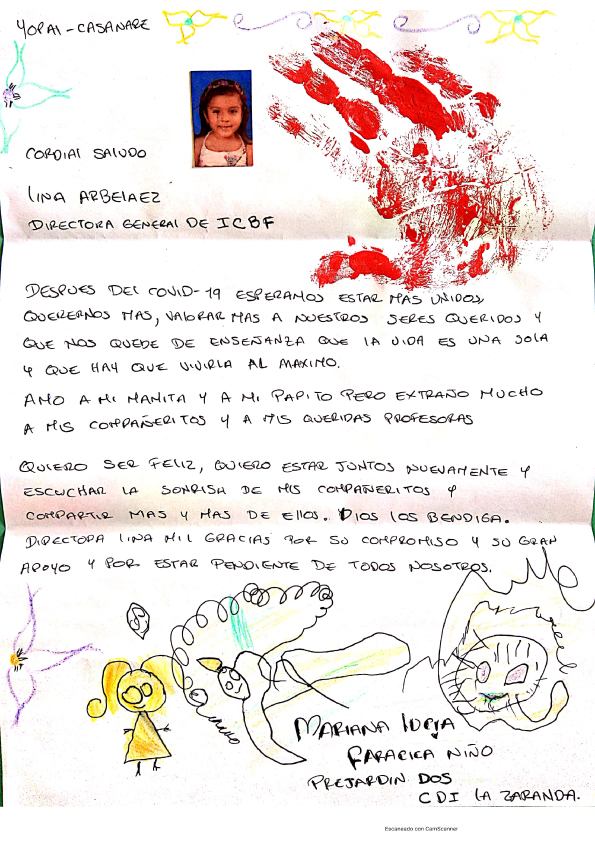 YOPAl - CASANARE
CORDIAl SAlUDO
lINA ARBElAEZ
DIRECTORA GENERAl DE ICBF
DESPUES DEl COVID-19 ESPERAMOS ESTAR MAS UNIDOS,
QUERERNOS MAS, VAlORAR MAS A NUESTROS SERES QUERIDOS Y
QUE NOS QUEDE DE ENSEÑANZA QUE lA VIDA ES UNA SOlA
Y QUE HAY QUE VIVIRlA AL MAXIMO.
AMO A MI MAMITA Y A MI PAPITO PERO EXTRAÑO MUCHO
A MIS COMPAÑERITOS Y A MIS QUERIDAS PROFESORAS
QUIERO SER FELIZ, QUIERO ESTAR JUNTOS NUEVAMENTE Y
ESCUCHAR LA SONRISA DE MIS COMPAÑERITOS Y
COMPARTIR MAS Y MAS DE EllOS. DIOS lOS BENDIGA.
DIRECTORA lINA MIL GRACIAS POR SU COMPROMISO Y SU GRAN
APOYO Y POR ESTAR PENDIENTE DE TODOS NOSOTROS.
MARIANA lUCIA
NIÑO
PREJARDIN DOS
CDI lA ZARANDA.
Escaneado con CamScanner